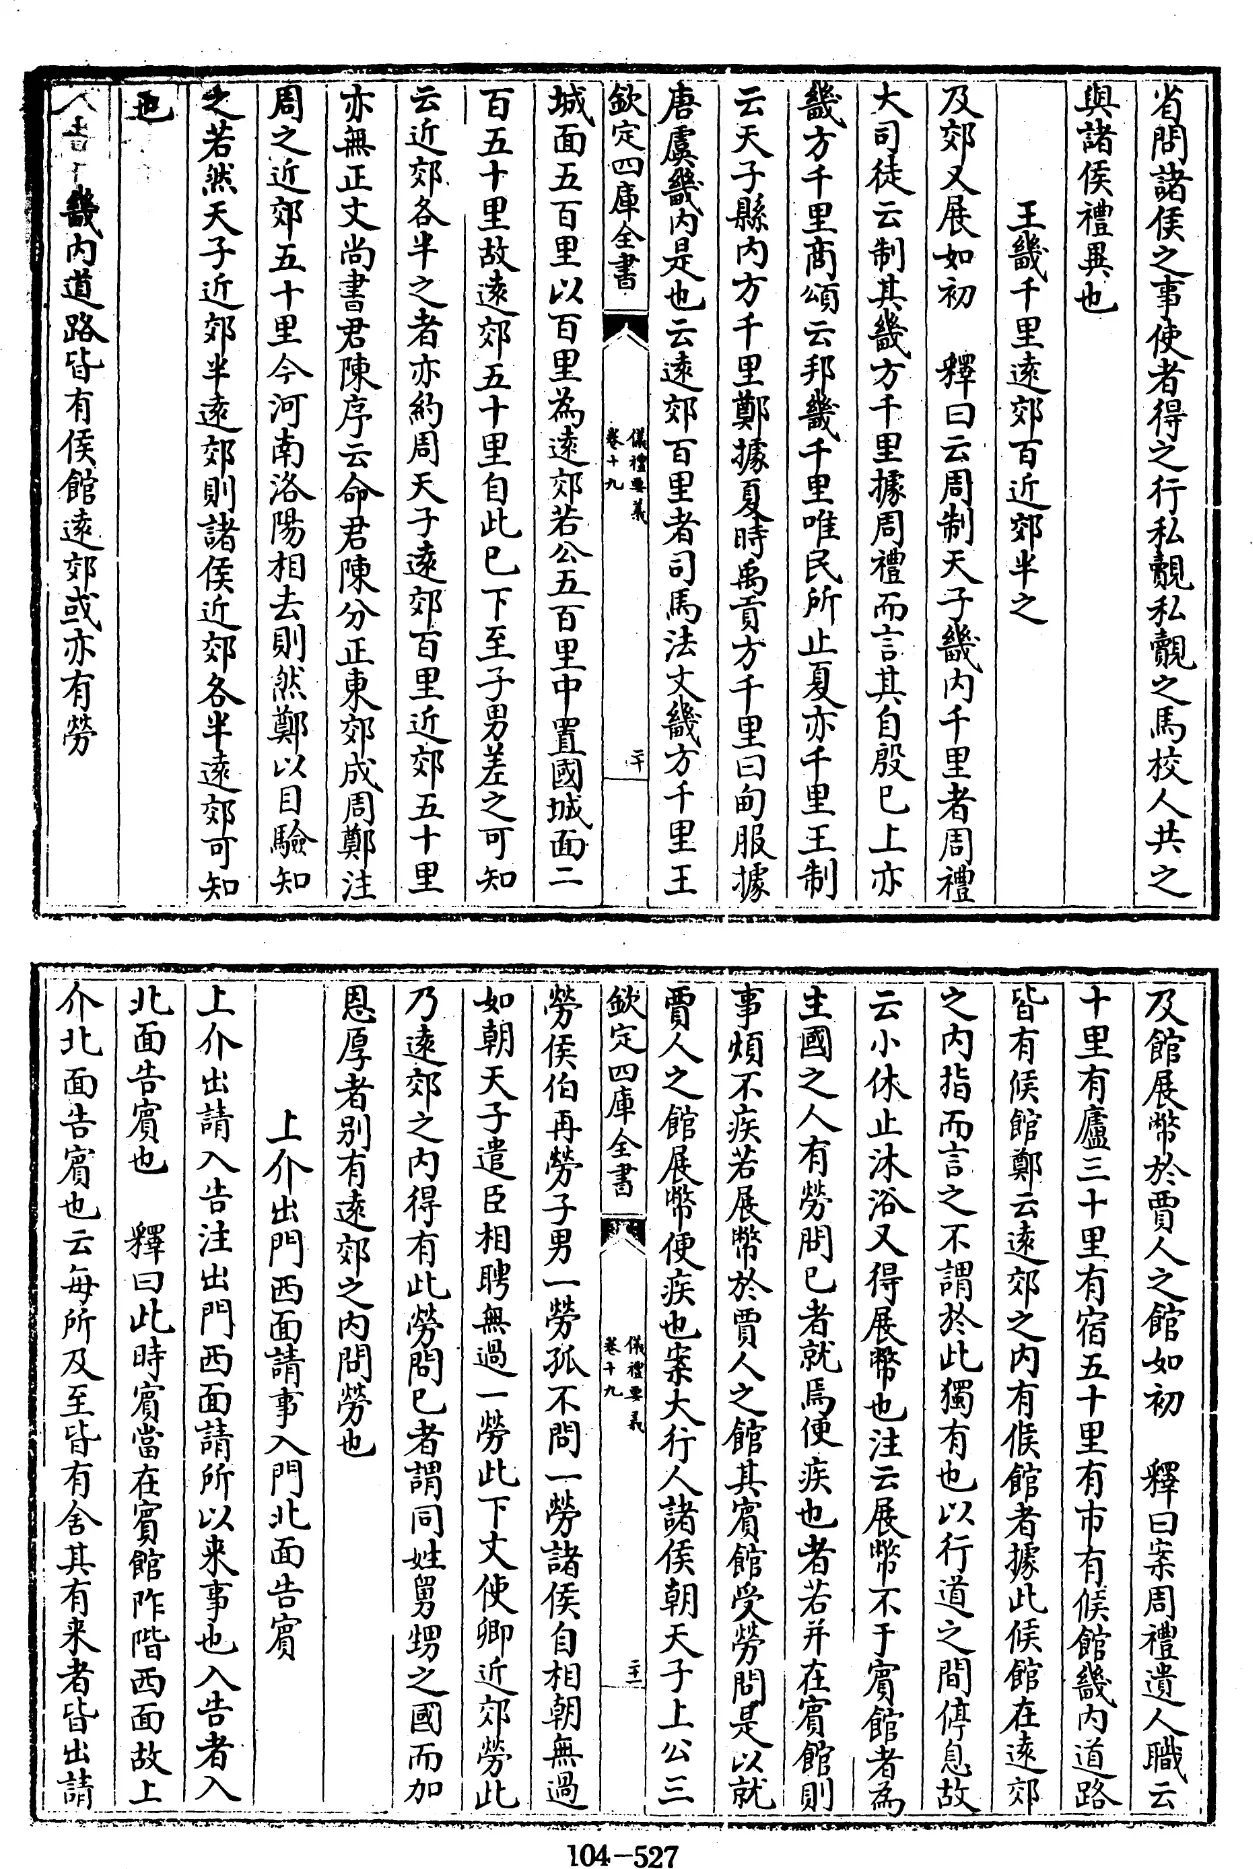 省問諸侯之事使者得之行私覿私覿之馬校人共之
與諸侯禮異也
王畿千里遠郊百近郊半之
及郊又展如初　釋曰云周制天子畿内千里者周禮
大司徒云制其畿方千里據周禮而言其自殷已上亦
畿方千里商頌云邦畿千里唯民所止夏亦千里王制
云天子縣内方千里鄭據夏時禹貢方千里曰甸服據
唐虞畿内是也云遠郊百里者司馬法文畿方千里王
欽定四庫全書
儀禮要義
卷十九
二十
城面五百里以百里為遠郊若公五百里中置國城面二
百五十里故遠郊五十里自此已下至子男差之可知
云近郊各半之者亦約周天子遠郊百里近郊五十里
亦無正文尚書君陳序云命君陳分正東郊成周鄭注
周之近郊五十里今河南洛陽相去則然鄭以目驗知
之若然天子近郊半遠郊則諸侯近郊各半遠郊可知
也
畿内道路皆有侯館遠郊或亦有勞
及館展幣於賈人之館如初　釋曰案周禮遺人職云
十里有廬三十里有宿五十里有市有候館畿内道路
皆有候館鄭云遠郊之内有候館者據此候館在遠郊
之内指而言之不謂於此獨有也以行道之間停息故
云小休止沐浴又得展幣也注云展幣不于賓館者為
主國之人有勞問已者就焉便疾也者若并在賓館則
事煩不疾若展幣於賈人之館其賓館受勞問是以就
賈人之館展幣便疾也案大行人諸侯朝天子上公三
欽定四庫全書
儀禮要義
卷十九
二十一
勞侯伯再勞子男一勞孤不問一勞諸侯自相朝無過
如朝天子遣臣相聘無過一勞此下文使卿近郊勞此
乃遠郊之内得有此勞問已者謂同姓舅甥之國而加
恩厚者别有遠郊之内問勞也
上介出門西面請事入門北面告賓
上介出請入告注出門西面請所以来事也入告者入
北面告賓也　釋曰此時賓當在賓館阼階西面故上
介北面告賓也云每所及至皆有舍其有来者皆出請
104-527